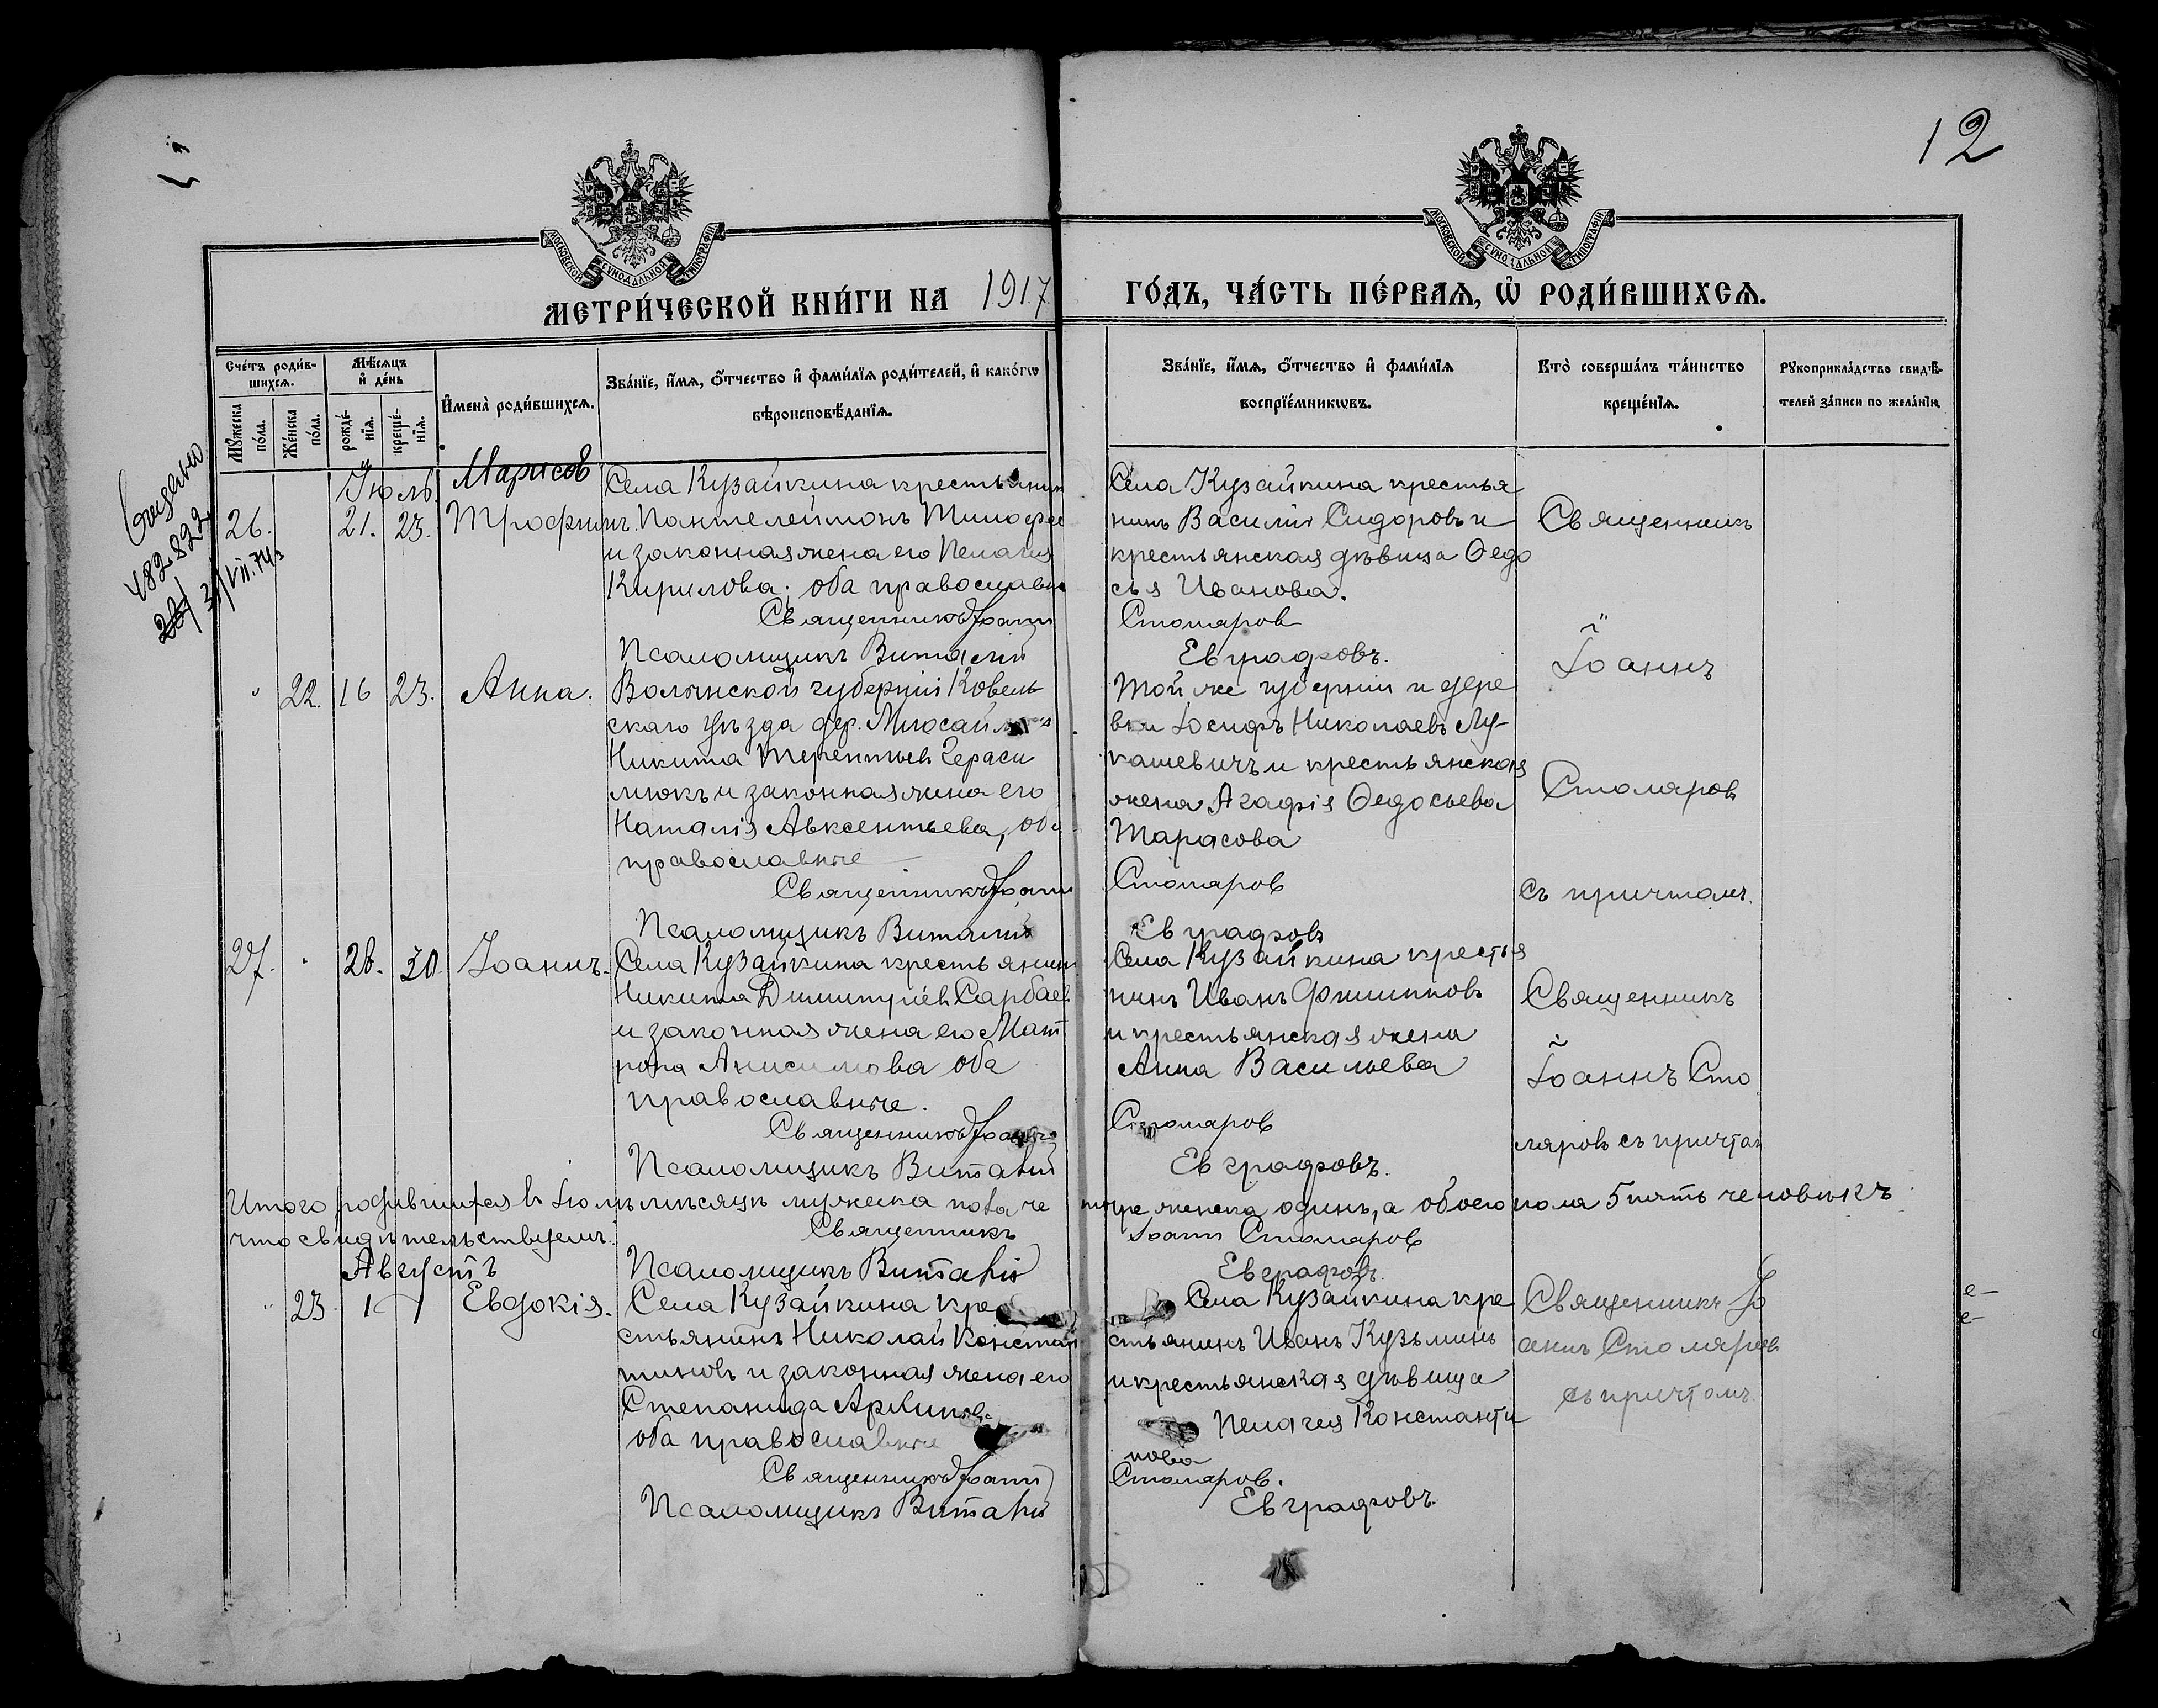 12
МОСКОВСКОЙ СУНОДАЛЬНОЙ ТИПОГРАФІИ
МОСКОВСКОЙ СУНОДАЛЬНОЙ ТИПОГРАФІИ
МЕТРИ́ЧЕСКОЙ КНИ́ГИ НА 1917 ГО́ДЪ, ЧА́СТЬ ПЕ́РВАѦ, Ѽ РОДИ́ВШИХСѦ.
Сче́тъ роди́в-
шихсѧ.
Мꙋ́жеска по́ла.
Же́нска по́ла.
Мѣ́сѧцъ
и҆ де́нь
рожде́-
нїѧ.
креще́-
нїѧ.
И҆мена̀ роди́вшихсѧ.
Зва́нїе, и҆́мѧ, ѻ҆́тчество и҆ фами́лїѧ роди́телей, и҆ како́гѡ
вѣроисповѣ́данїѧ.
Зва́нїе, и҆́мѧ, ѻ҆́тчество и҆ фами́лїѧ
воспрїе́мникѡвъ.
Кто̀ соверша́лъ та́инство
креще́нїѧ.
Рꙋкоприкла́дство свидѣ́-
телей за́писи по жела́нїю
482822
31/VII.74г
Іюль. Марисов
26. 21. 23. Трофимъ.
Села Кузайкина крестьянин
Пантелеймонъ Тимофее
и законная жена его Пелагия
Кирилова; оба православн
Священникъ Іоанн
Псаломщикъ Виталий
Села Кузайкина крестья
нинъ Василий Сидоровъ и
крестьянская дѣвица Ѳедо
сья Иванова.
Столяров
Евграфовъ.
Священникъ
Іоаннъ
Столяров
съ причтомъ.
" 22. 16 23. Анна.
Волынской губерніи Ковель
скаго уѣзда дер.
Никита Терентьев Гераси
мюкъ и законная жена его
Наталія Авксентьева, оба
православные
Священникъ Іоанн
Псаломщикъ Виталий
Той же губерніи и дере
вни Іосифъ Николаевъ Лу-
кашевичъ и крестьянская
жена Агафія Ѳедосьева
Тарасова
Столяров
Евграфов
27. " 28. 30. Іоаннъ.
Села Кузайкина крестьянин
Никита Димитріев Сарбаев
и законная жена его Мат
рона Анисимова оба
православные.
Священникъ Іоаннъ
Псаломщикъ Виталий
Села Кузайкина крестья
нинъ Иванъ Филипповъ
и крестьянская жена
Анна Васильева
Столяров
Евграфовъ.
Священникъ
Іоаннъ Сто
ляровъ съ причтом
Итого родившихся въ Іюль мѣсяцѣ мужеска пола че тыре, женска одинъ, а обоего пола 5 пять человѣкъ
что свидѣтельствуемъ: Священникъ Іоанн Столяров
Псаломщикъ Виталий Евграфовъ.
Августъ
" 23 1 Евдокія.
Села Кузайкина кре
стьянинъ Николай Констан
тиновъ и законная жена его
Степанида Архипов
оба православные
Священникъ Іоанн
Псаломщикъ Виталий
Села Кузайкина кре
стьянинъ Иванъ Кузьминъ
и крестьянская дѣвица
Пелагея Константи
нова
Столяров.
Евграфовъ.
Священникъ Іо
аннъ Столяров
съ причтомъ.